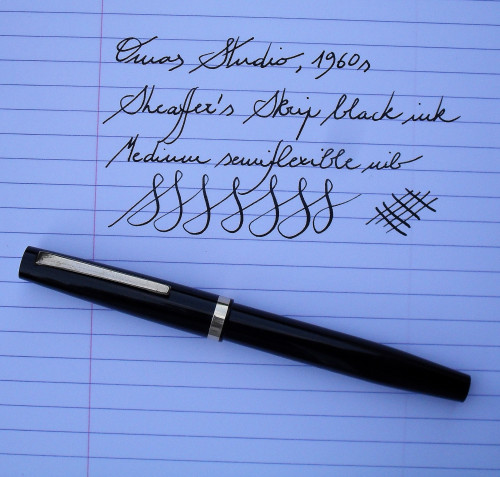 Omas Studio, 1960s
Sheaffer's Skrip black ink
Medium semiflexible nib